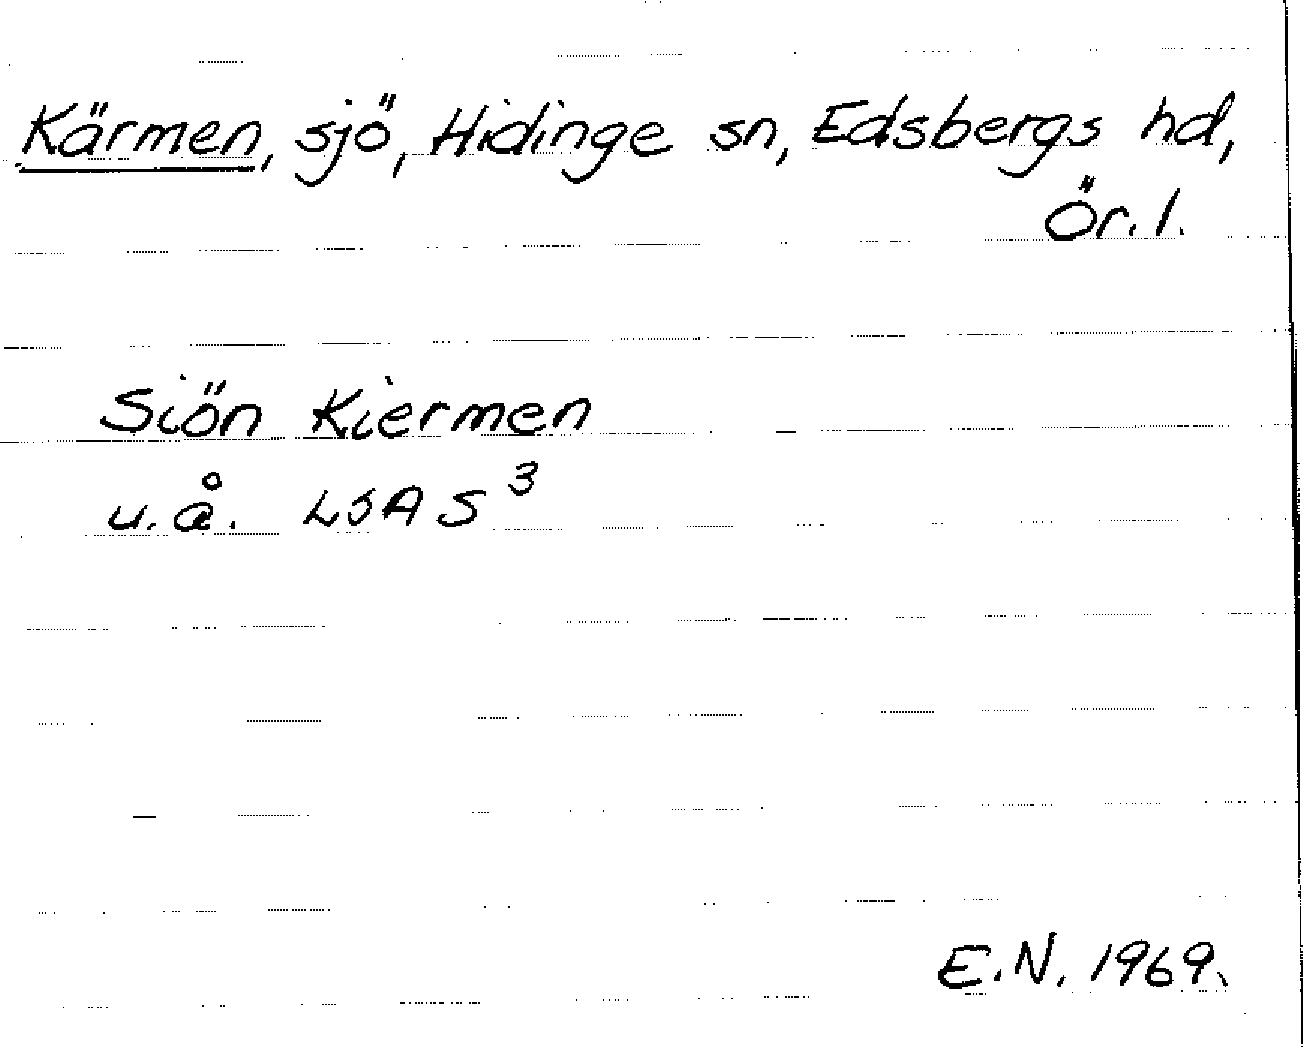 Kärmen, sjö, Hidinge sn, Edsbergs hd,
Ör. l.
Siön Kiermen
u. å. LSA S³
E.N. 1969.